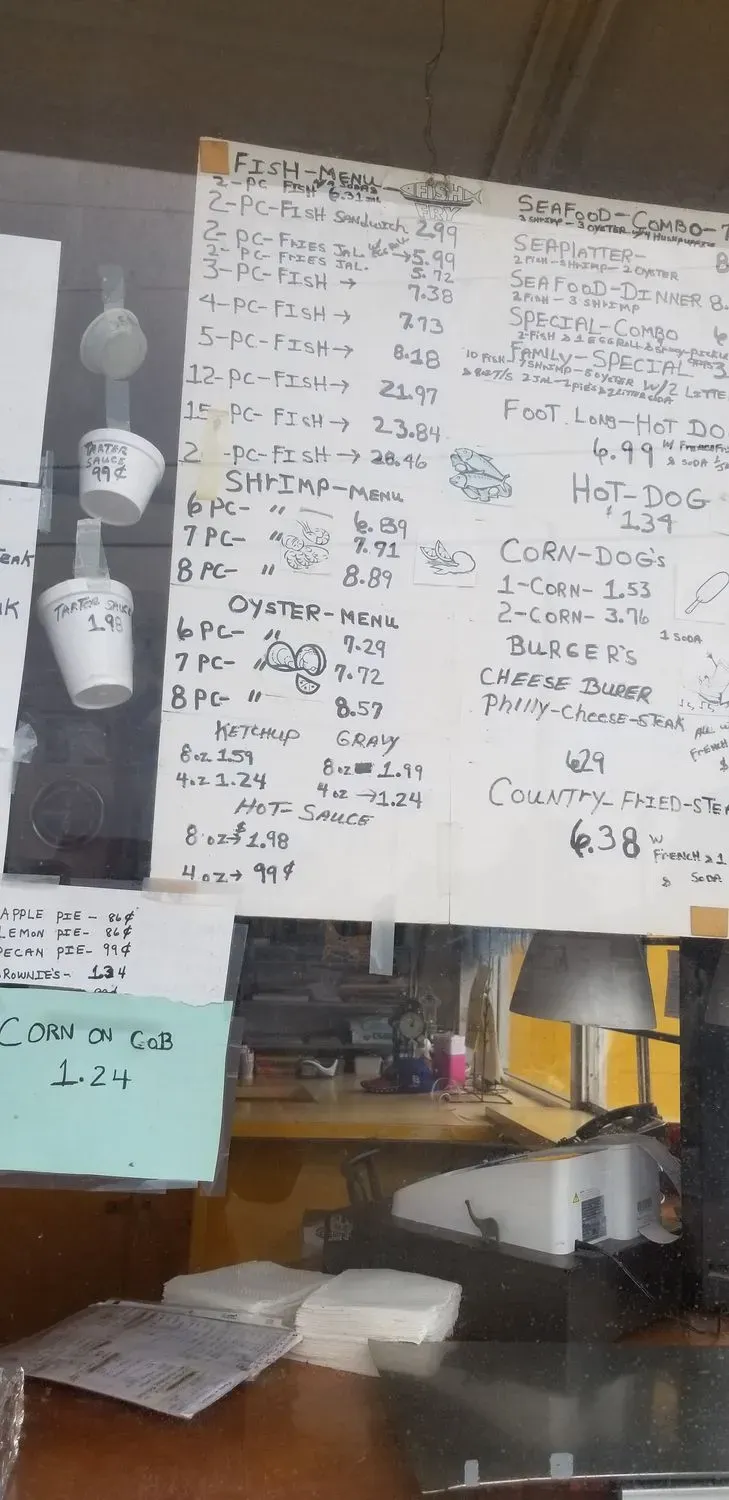 FISH-MENU
FISH
FRY
2-PC FISH 6.31
2-PC-FISH SANDWICH 2.99
2-PC-FRIES JAL. → 5.99
2-PC-FRIES JAL. 5.72
3-PC-FISH → 7.38
4-PC-FISH → 7.73
5-PC-FISH → 8.18
12-PC-FISH → 21.97
15-PC-FISH → 23.84
2 -PC-FISH → 28.46
SHRIMP-MENU
6 PC- " 6.89
7 PC- " 7.71
8 PC- " 8.89
OYSTER-MENU
6 PC- " 7.29
7 PC- " 7.72
8 PC- " 8.57
KETCHUP
8oz 1.59
4.oz 1.24
GRAVY
8oz 1.99
4oz → 1.24
HOT-SAUCE
8.oz → $1.98
4.oz → 99¢
SEAFOOD-COMBO-7
3 SHRIMP - 3 OYSTER W/4 HUSHPUPPIE
SEAPLATTER- 8
2 FISH-2 SHRIMP-2 OYSTER
SEAFOOD-DINNER 8.
2 FISH - 3 SHRIMP
SPECIAL-COMBO 6
2-FISH & 1 EGGROLL & SPICY-PICKLE
FAMILY-SPECIAL- 3
10 FISH 7 SHRIMP-8 OYSTER W/2 LITTE
FOOT. LONG-HOT DO
6.99 W FRENCH FRI
& SODA
HOT-DOG
$1.34
CORN-DOG'S
1-CORN- 1.53
2-CORN- 3.76
1 SODA
BURGER'S
CHEESE BURER
PHILLY-CHEESE-STEAK
ALL W
FRENCH
$
6.29
COUNTRY-FRIED-STEA
6.38 W
FRENCH & 1
& SODA
TARTER
SAUCE
99¢
TARTER SAUCE
1.98
TEAK
K
APPLE PIE - 86¢
LEMON PIE- 86¢
PECAN PIE- 99¢
ROWNIE'S - 1.34
CORN ON COB
1.24